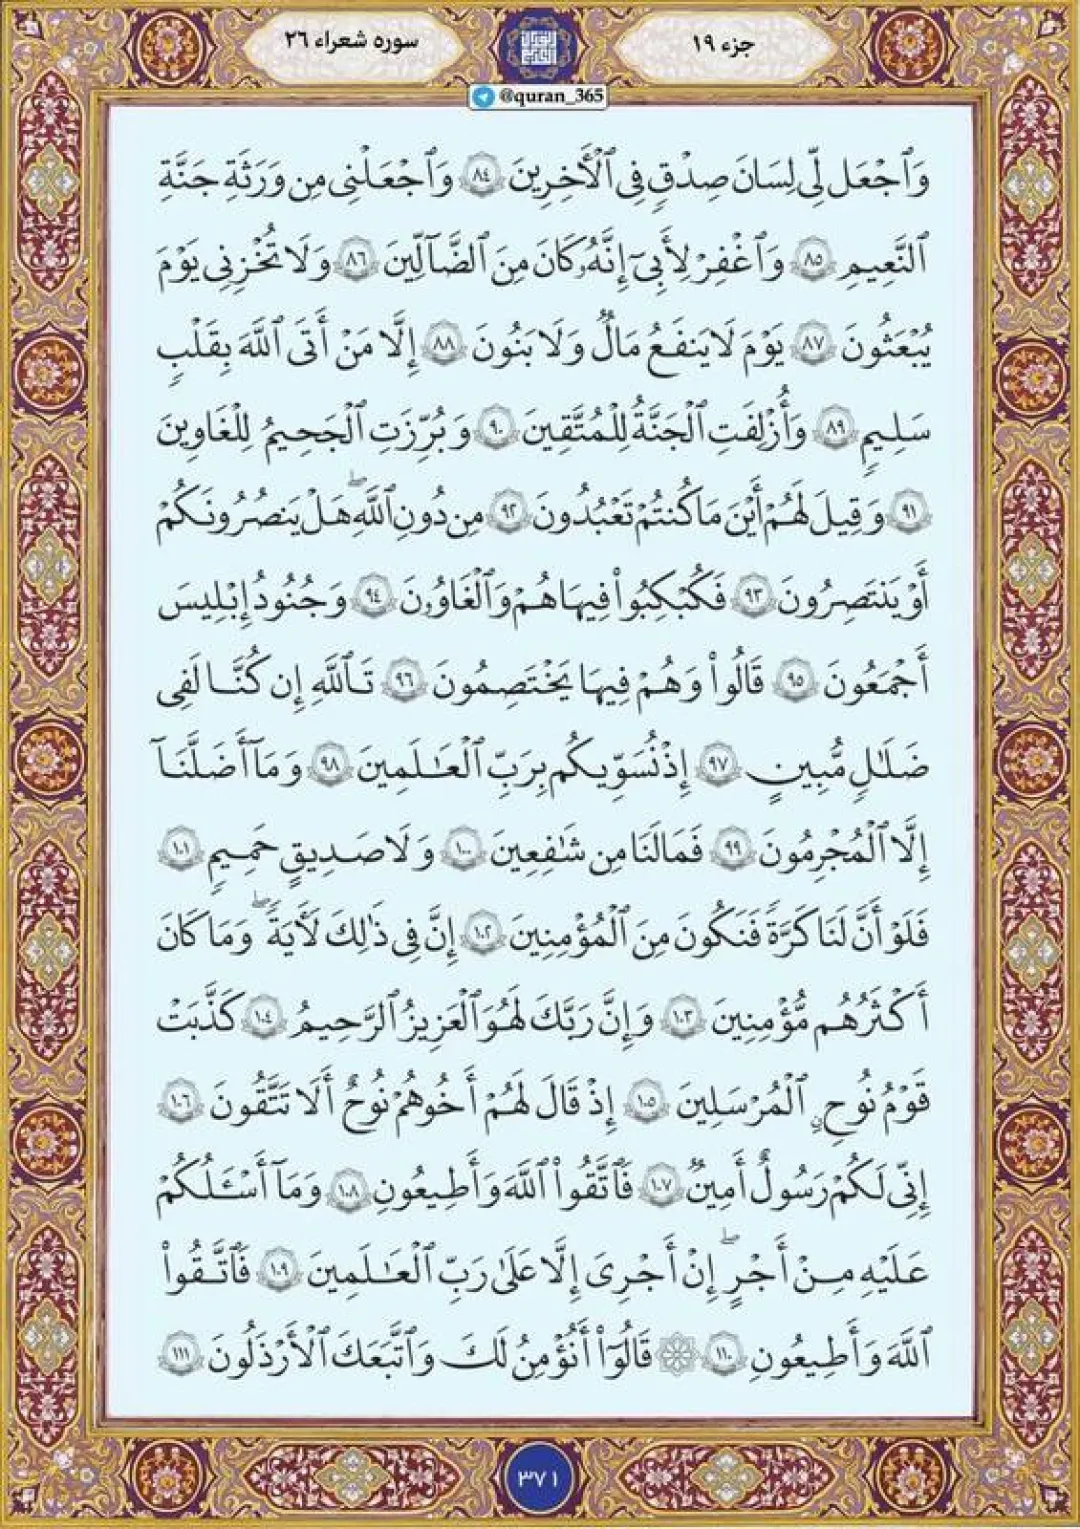 جزء ۱۹
سوره شعراء ۲۶
@quran_365
وَٱجْعَل لِّى لِسَانَ صِدْقٍ فِى ٱلْأَخِرِينَ ٨٤ وَٱجْعَلْنِى مِن وَرَثَةِ جَنَّةِ
ٱلنَّعِيمِ ٨٥ وَٱغْفِرْ لِأَبِىٓ إِنَّهُۥ كَانَ مِنَ ٱلضَّآلِّينَ ٨٦ وَلَا تُخْزِنِى يَوْمَ
يُبْعَثُونَ ٨٧ يَوْمَ لَا يَنفَعُ مَالٌ وَلَا بَنُونَ ٨٨ إِلَّا مَنْ أَتَى ٱللَّهَ بِقَلْبٍ
سَلِيمٍ ٨٩ وَأُزْلِفَتِ ٱلْجَنَّةُ لِلْمُتَّقِينَ ٩٠ وَبُرِّزَتِ ٱلْجَحِيمُ لِلْغَاوِينَ
٩١ وَقِيلَ لَهُمْ أَيْنَ مَا كُنتُمْ تَعْبُدُونَ ٩٢ مِن دُونِ ٱللَّهِ ۖ هَلْ يَنصُرُونَكُمْ
أَوْ يَنتَصِرُونَ ٩٣ فَكُبْكِبُوا۟ فِيهَا هُمْ وَٱلْغَاوُۥنَ ٩٤ وَجُنُودُ إِبْلِيسَ
أَجْمَعُونَ ٩٥ قَالُوا۟ وَهُمْ فِيهَا يَخْتَصِمُونَ ٩٦ تَٱللَّهِ إِن كُنَّا لَفِى
ضَلَٰلٍ مُّبِينٍ ٩٧ إِذْ نُسَوِّيكُم بِرَبِّ ٱلْعَٰلَمِينَ ٩٨ وَمَآ أَضَلَّنَآ
إِلَّا ٱلْمُجْرِمُونَ ٩٩ فَمَا لَنَا مِن شَٰفِعِينَ ١٠٠ وَلَا صَدِيقٍ حَمِيمٍ ١٠١
فَلَوْ أَنَّ لَنَا كَرَّةً فَنَكُونَ مِنَ ٱلْمُؤْمِنِينَ ١٠٢ إِنَّ فِى ذَٰلِكَ لَأَيَةً ۖ وَمَا كَانَ
أَكْثَرُهُم مُّؤْمِنِينَ ١٠٣ وَإِنَّ رَبَّكَ لَهُوَ ٱلْعَزِيزُ ٱلرَّحِيمُ ١٠٤ كَذَّبَتْ
قَوْمُ نُوحٍ ٱلْمُرْسَلِينَ ١٠٥ إِذْ قَالَ لَهُمْ أَخُوهُمْ نُوحٌ أَلَا تَتَّقُونَ ١٠٦
إِنِّى لَكُمْ رَسُولٌ أَمِينٌ ١٠٧ فَٱتَّقُوا۟ ٱللَّهَ وَأَطِيعُونِ ١٠٨ وَمَآ أَسْـَٔلُكُمْ
عَلَيْهِ مِنْ أَجْرٍ ۖ إِنْ أَجْرِىَ إِلَّا عَلَىٰ رَبِّ ٱلْعَٰلَمِينَ ١٠٩ فَٱتَّقُوا۟
ٱللَّهَ وَأَطِيعُونِ ١١٠ ۞ قَالُوٓا۟ أَنُؤْمِنُ لَكَ وَٱتَّبَعَكَ ٱلْأَرْذَلُونَ ١١١
۳۷۱